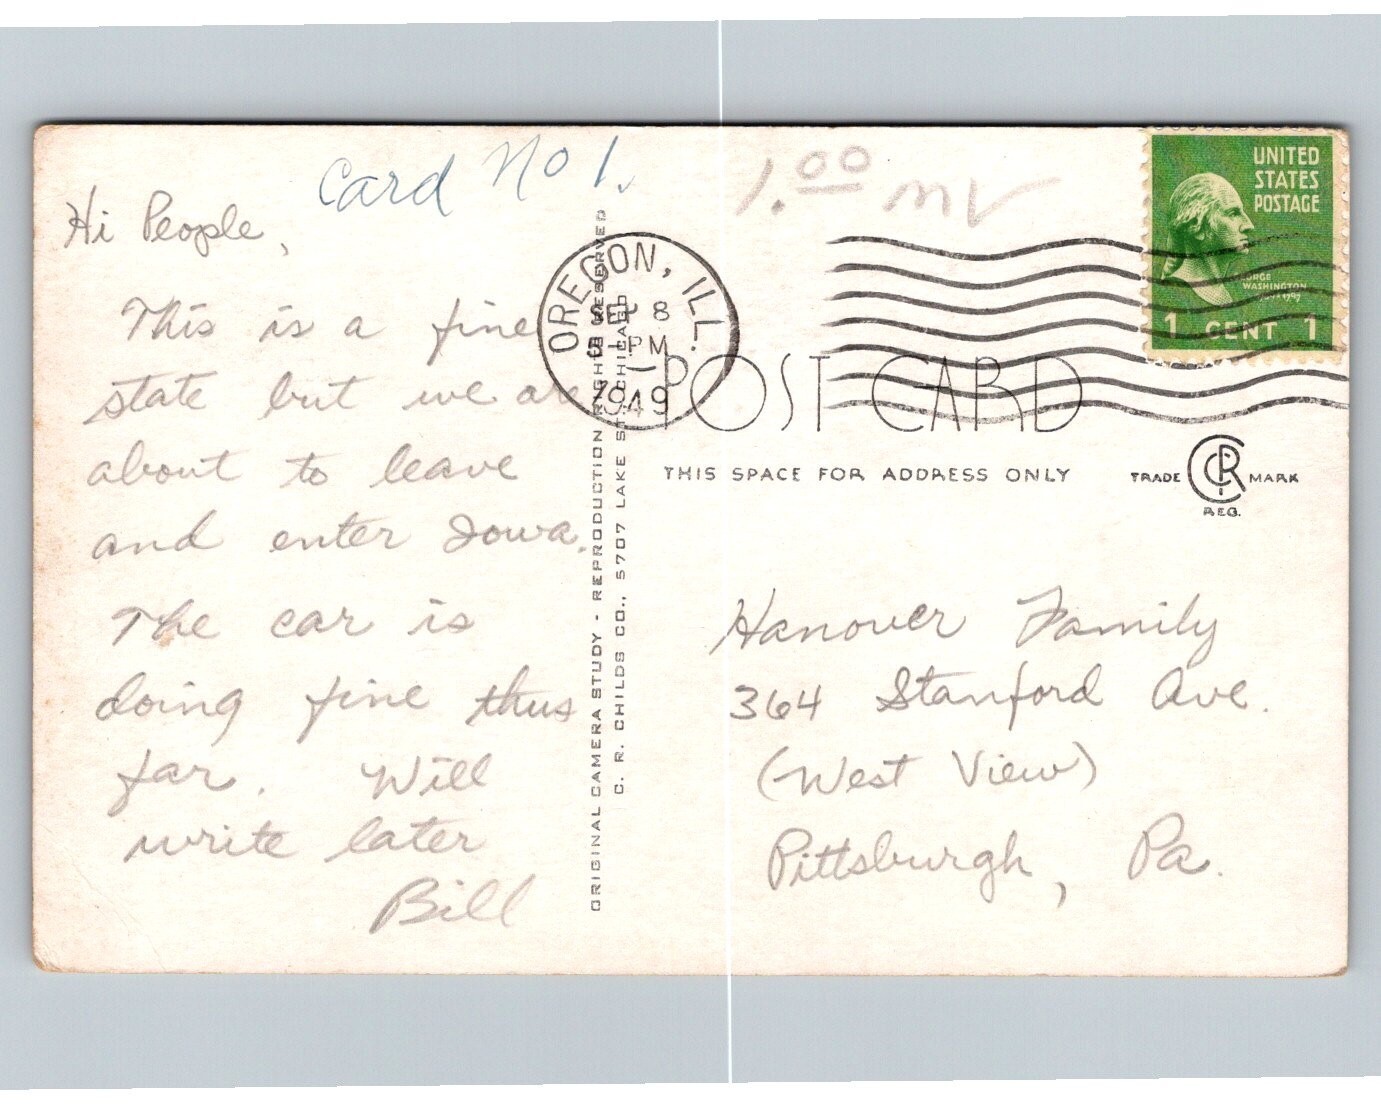 Card No 1.
1.00 mv
Hi People,
This is a fine
state but we are
about to leave
and enter Iowa.
The car is
doing fine thus
far. Will
write later
Bill
ORIGINAL CAMERA STUDY - REPRODUCTION RIGHTS RESERVED
C. R. CHILDS CO., 5707 LAKE ST. CHICAGO
OREGON, ILL.
SEP 8
PM
1949
UNITED
STATES
POSTAGE
GEORGE
WASHINGTON
1 CENT 1
POST CARD
THIS SPACE FOR ADDRESS ONLY
TRADE CRC MARK
REG.
Hanover Family
364 Stanford Ave.
(West View)
Pittsburgh, Pa.